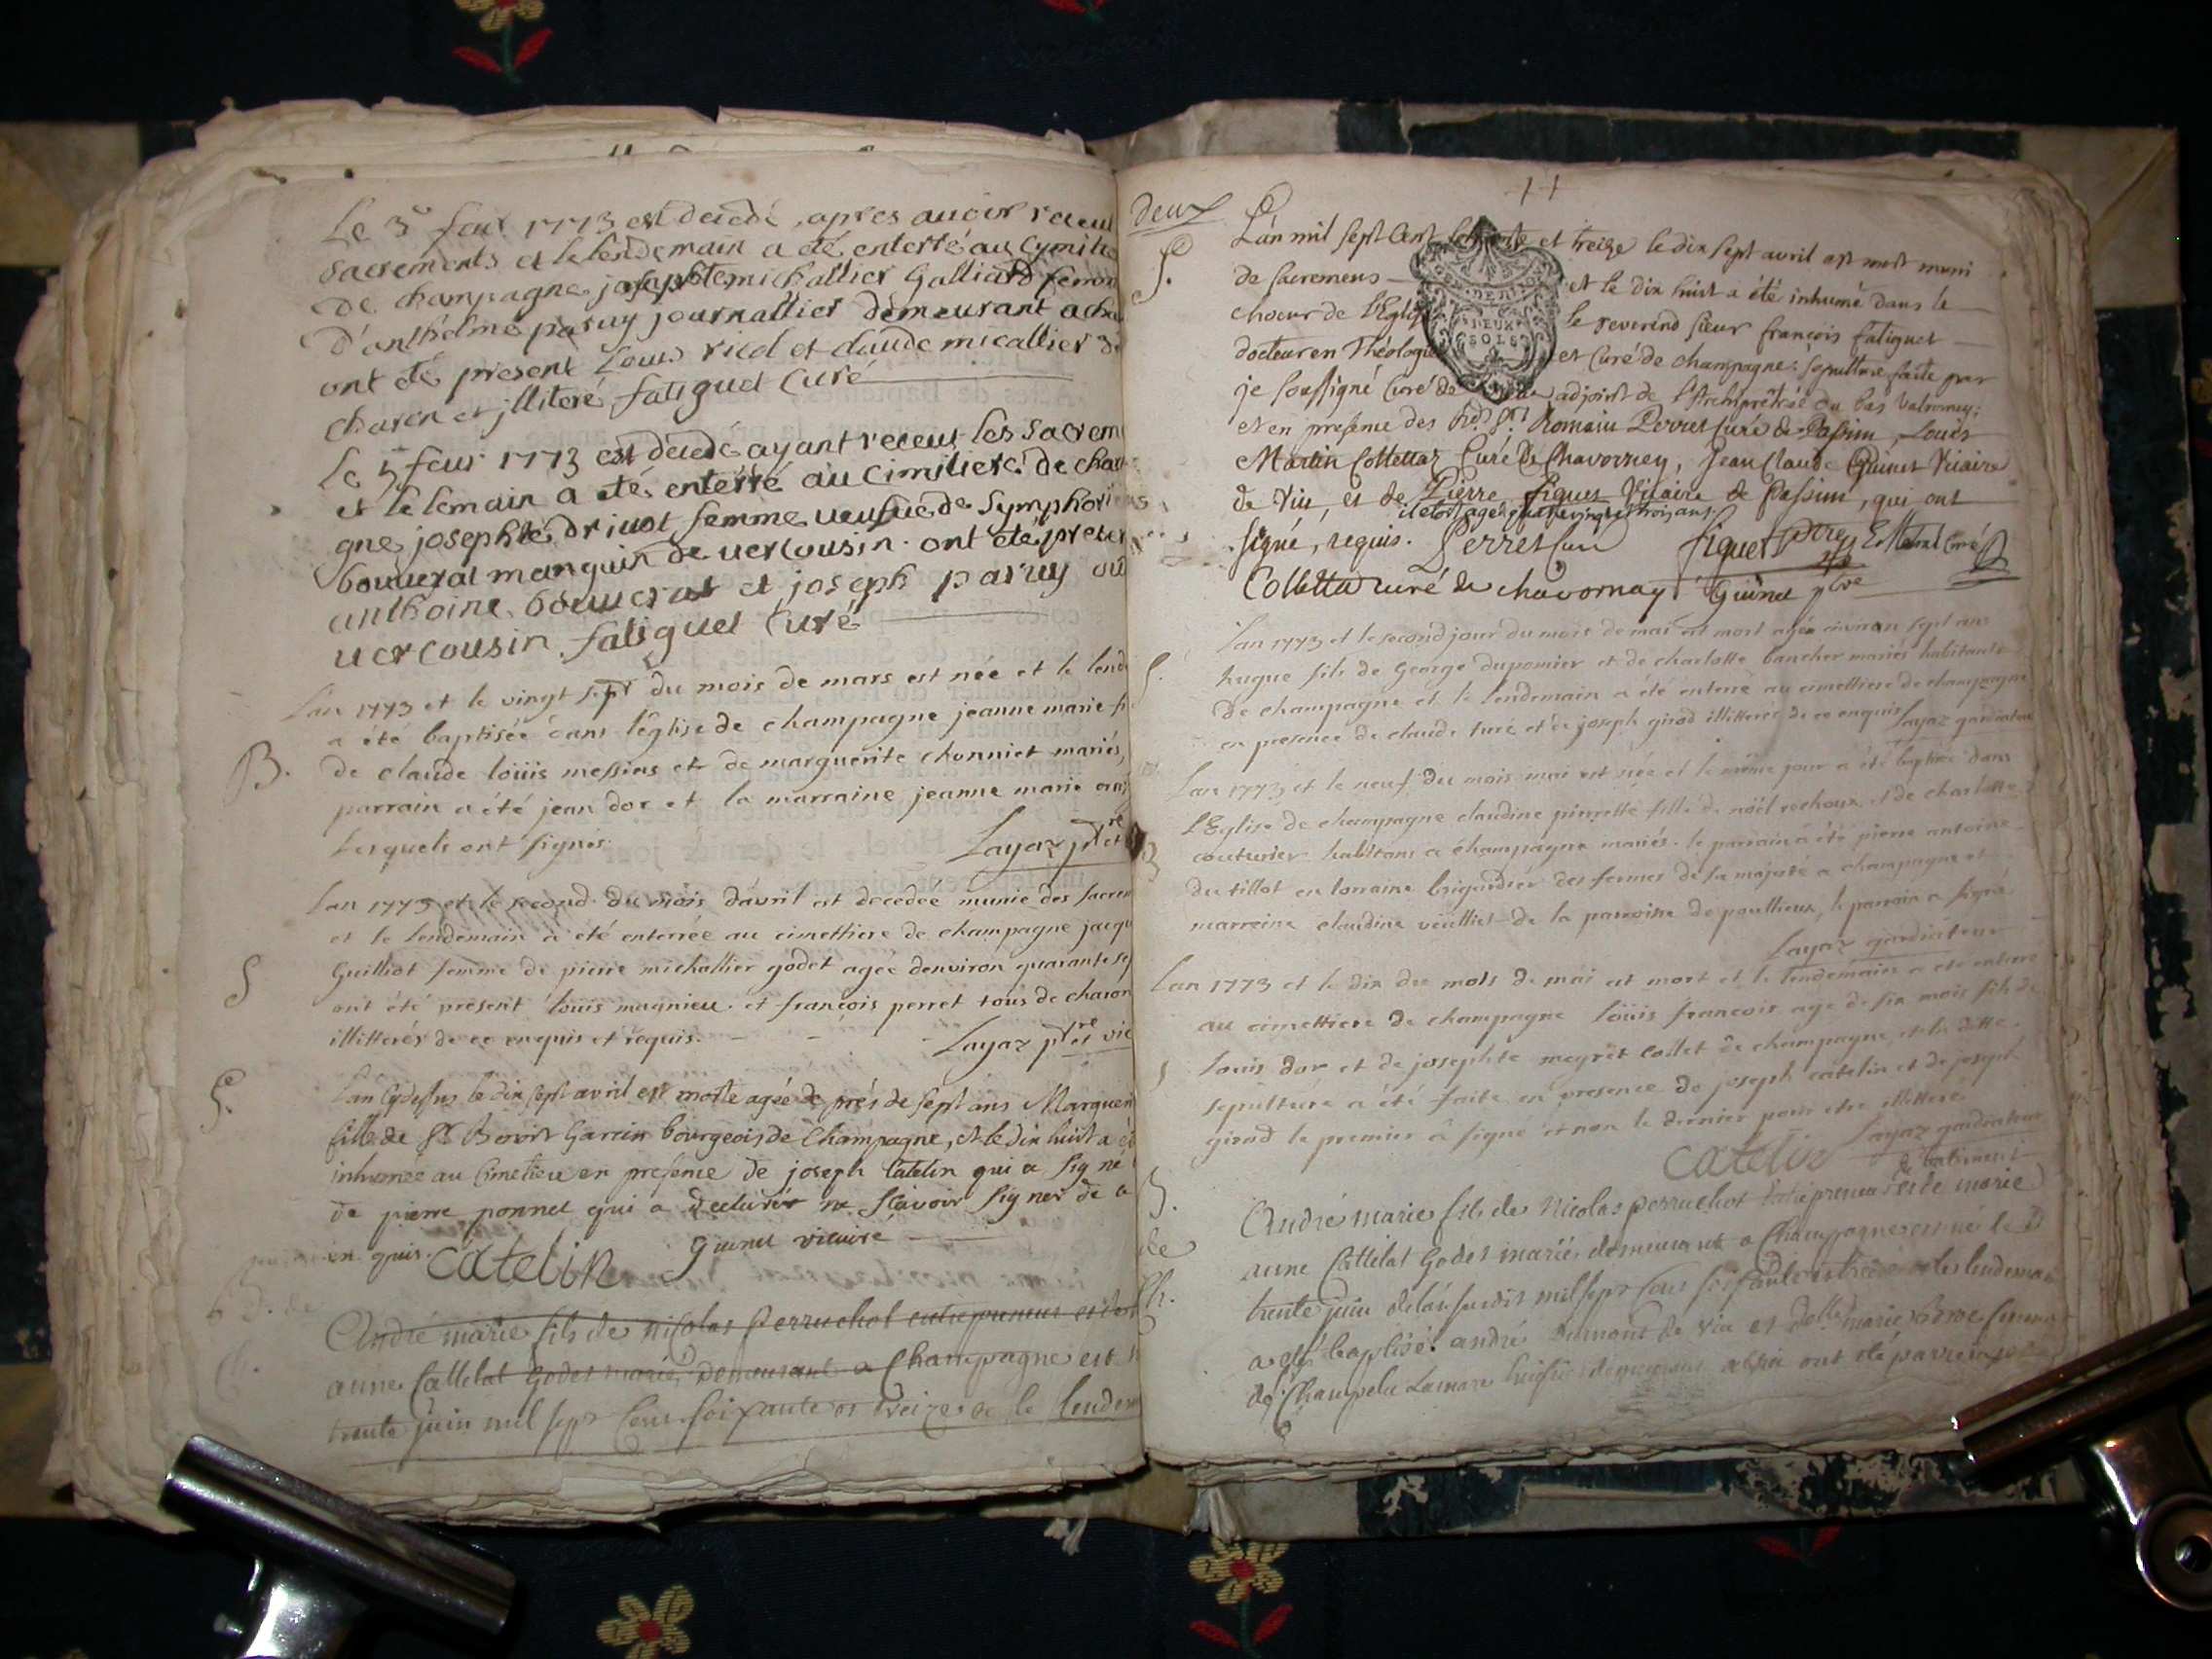 Le 3e feur 1773 est decedé, apres auoir receu
sacrements et le lendemain a été enterré au Cymitie
De champagne josephte michallier Galliard femm
D'anthelme paruy journallier demeurant a cha
ont été present Louis riel et claude micallier de
charen et jlliteré fatiguet Curé
le 5 feur 1773 est decedé ayant receus les sacrem
et le lemain a eté enterré au cimitiere de cham
gne josephte driuot femme ueufue de Symphorien
bouuerat manguin de uercousin ont eté presen
anthoine bouuerat et joseph paruy
uercousin fatiguet Curé
B.
L'an 1773 et le vingt sept du mois de mars est née et le lend
a été baptisée dans l'église de champagne jeanne marie fi
de claude loüis messins et de marguerite chonniet mariés,
parrain a été jean dor et la marraine jeanne marie
lesquels ont signés.
Layaz ptre et
S
L'an 1773 et le second du mois d'avril est decedée munie des sacrem
et le lendemain a été enterrée au cimettiere de champagne jacqu
Guilliot femme de pierre michallier godet agée denviron quarante sep
ont été présent louis magnieu et françois perret tous de charon
illitterés de ce enquis et requis.
Layaz ptre et vic
S.
L'an cydessus le dix sept avril est morte agée de près de sept ans Marguerit
fille de Sr Benoit Garcin bourgeois de Champagne, et le dix huit a ét
inhumée au Cimetiere en presence de joseph Catelin qui a signé
de pierre ponnet qui a declaré ne sçavoir signer de ce
enquis. Catelin Guinet vicaire
André marie fils de Nicolas Perruchot entrepreneur et de
anne Cattelat Godet mariés demeurant a Champagne est n
trente juin mil sept Cent soixante et treize et le lendem
11
deux
S.
L'an mil sept Cent et treize le dix sept avril est mort muni
de sacremens et le dix huit a été inhumé dans le
choeur de l'Eglise le reverend sieur françois fatiguet
docteur en Théologie et Curé de champagne: sepulture faite par
je soussigné Curé de adjoint de l'Archiprêtré du bas Valromey;
et en presence des Rds Srs Romain Perret Curé de Passin, Louis
Martin Collettaz Curé de Chavorney, Jean Claude Guinet Vicaire
de Viu, et de Pierre figuet Vicaire de Passin, qui ont
il etoit agé de quatre vingt et trois ans.
signé, requis. Perret curé figuet ptre
Colletta curé de chavornay Guinet ptre
DEUX
SOLS
S.
L'an 1773 et le second jour du mois de mai est mort agé environ sept ans
hugue fils de George dupomier et de charlotte bancher mariés habitants
de champagne et le lendemain a été enterré au cimettiere de champagne
en presence de claude turé et de joseph girod illitterés de ce enquis Layaz gardiateur
B
L'an 1773 et le neuf du mois mai est née et le même jour a été baptisée dans
l'Eglise de champagne claudine pierrette fille de nöel rochoux et de charlotte
couturier habitans a champagne mariés. le parrain a été pierre antoine
du tillot en lorraine brigardier des fermes de sa majesté a champagne et
marreine claudine veuilliet de la parroisse de pouillieux, le parrain a signé
Layaz gardiateur
S
L'an 1773 et le dix du mois de mai est mort et le lendemain a été enterré
au cimettiere de champagne loüis françois age de six mois fils de
Louis dor et de josephte meyret collet de champagne et la ditte
sepulture a été faite en presence de joseph catelin et de joseph
girod le premier a signé et non le dernier pour etre illitteré
Catelin Layaz gardiateur
B.
de
Ch.
de batiment
André marie fils de Nicolas perruchot entrepreneur et de marie
anne Cattelat Godet mariés demeurant a Champagne est né le
trente juin de l'an susdit mil sept Cent soixante et treize et le lendemain
a été baptisé. andré dumont de viu et delle marie
de Champelu Lamare huissier demeurant a viu ont été parrein